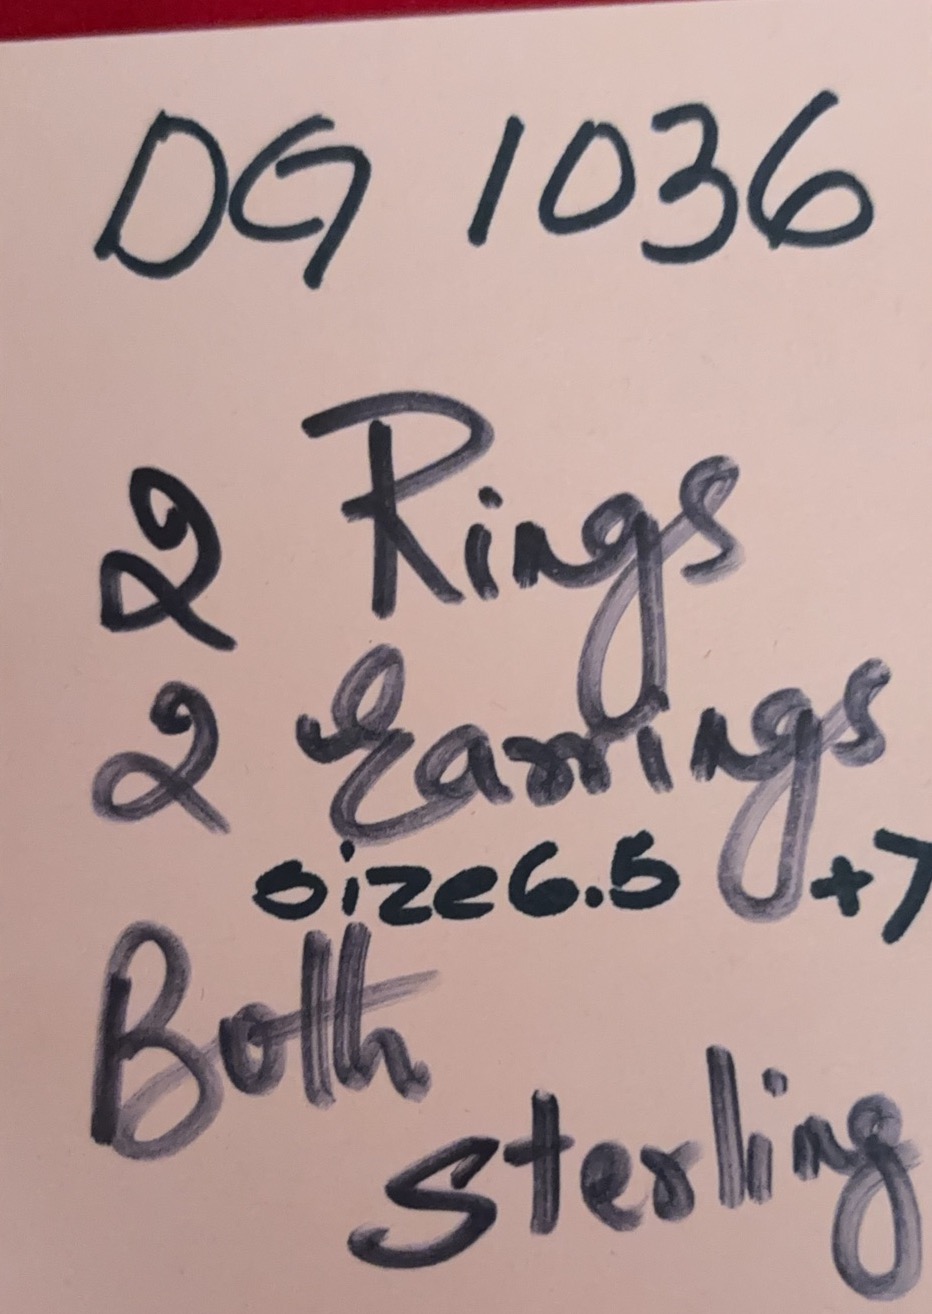 DG 1036
2 Rings
2 Earrings
size 6.5 + 7
Both
Sterling